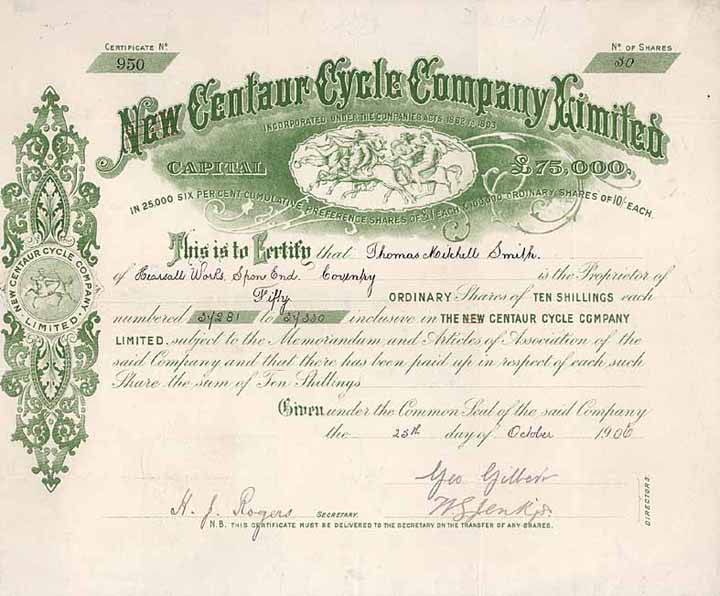 CERTIFICATE No.
950
No. OF SHARES
50
New Centaur Cycle Company Limited
INCORPORATED UNDER THE COMPANIES ACTS 1862 TO 1893
CAPITAL £75,000.
IN 25,000 SIX PER CENT CUMULATIVE PREFERENCE SHARES OF £1 EACH & 100,000 ORDINARY SHARES OF 10/- EACH.
NEW CENTAUR CYCLE COMPANY LIMITED.
This is to Certify that Thomas Mitchell Smith.
of Hearsall Works, Spon End. Coventry is the Proprietor of
Fifty ORDINARY Shares of TEN SHILLINGS each
numbered 54281 to 54330 inclusive in THE NEW CENTAUR CYCLE COMPANY
LIMITED. subject to the Memorandum and Articles of Association of the
said Company and that there has been paid up in respect of each such
Share the sum of Ten Shillings
Given under the Common Seal of the said Company
the 25th day of October 1906
Geo Gilbert
H. J. Rogers SECRETARY.
DIRECTORS.
N.B. THIS CERTIFICATE MUST BE DELIVERED TO THE SECRETARY ON THE TRANSFER OF ANY SHARES.